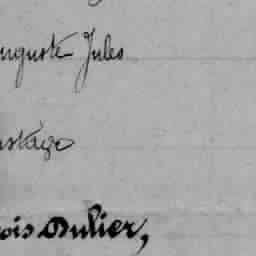 uguste Jules
ustage
ois Dulier,